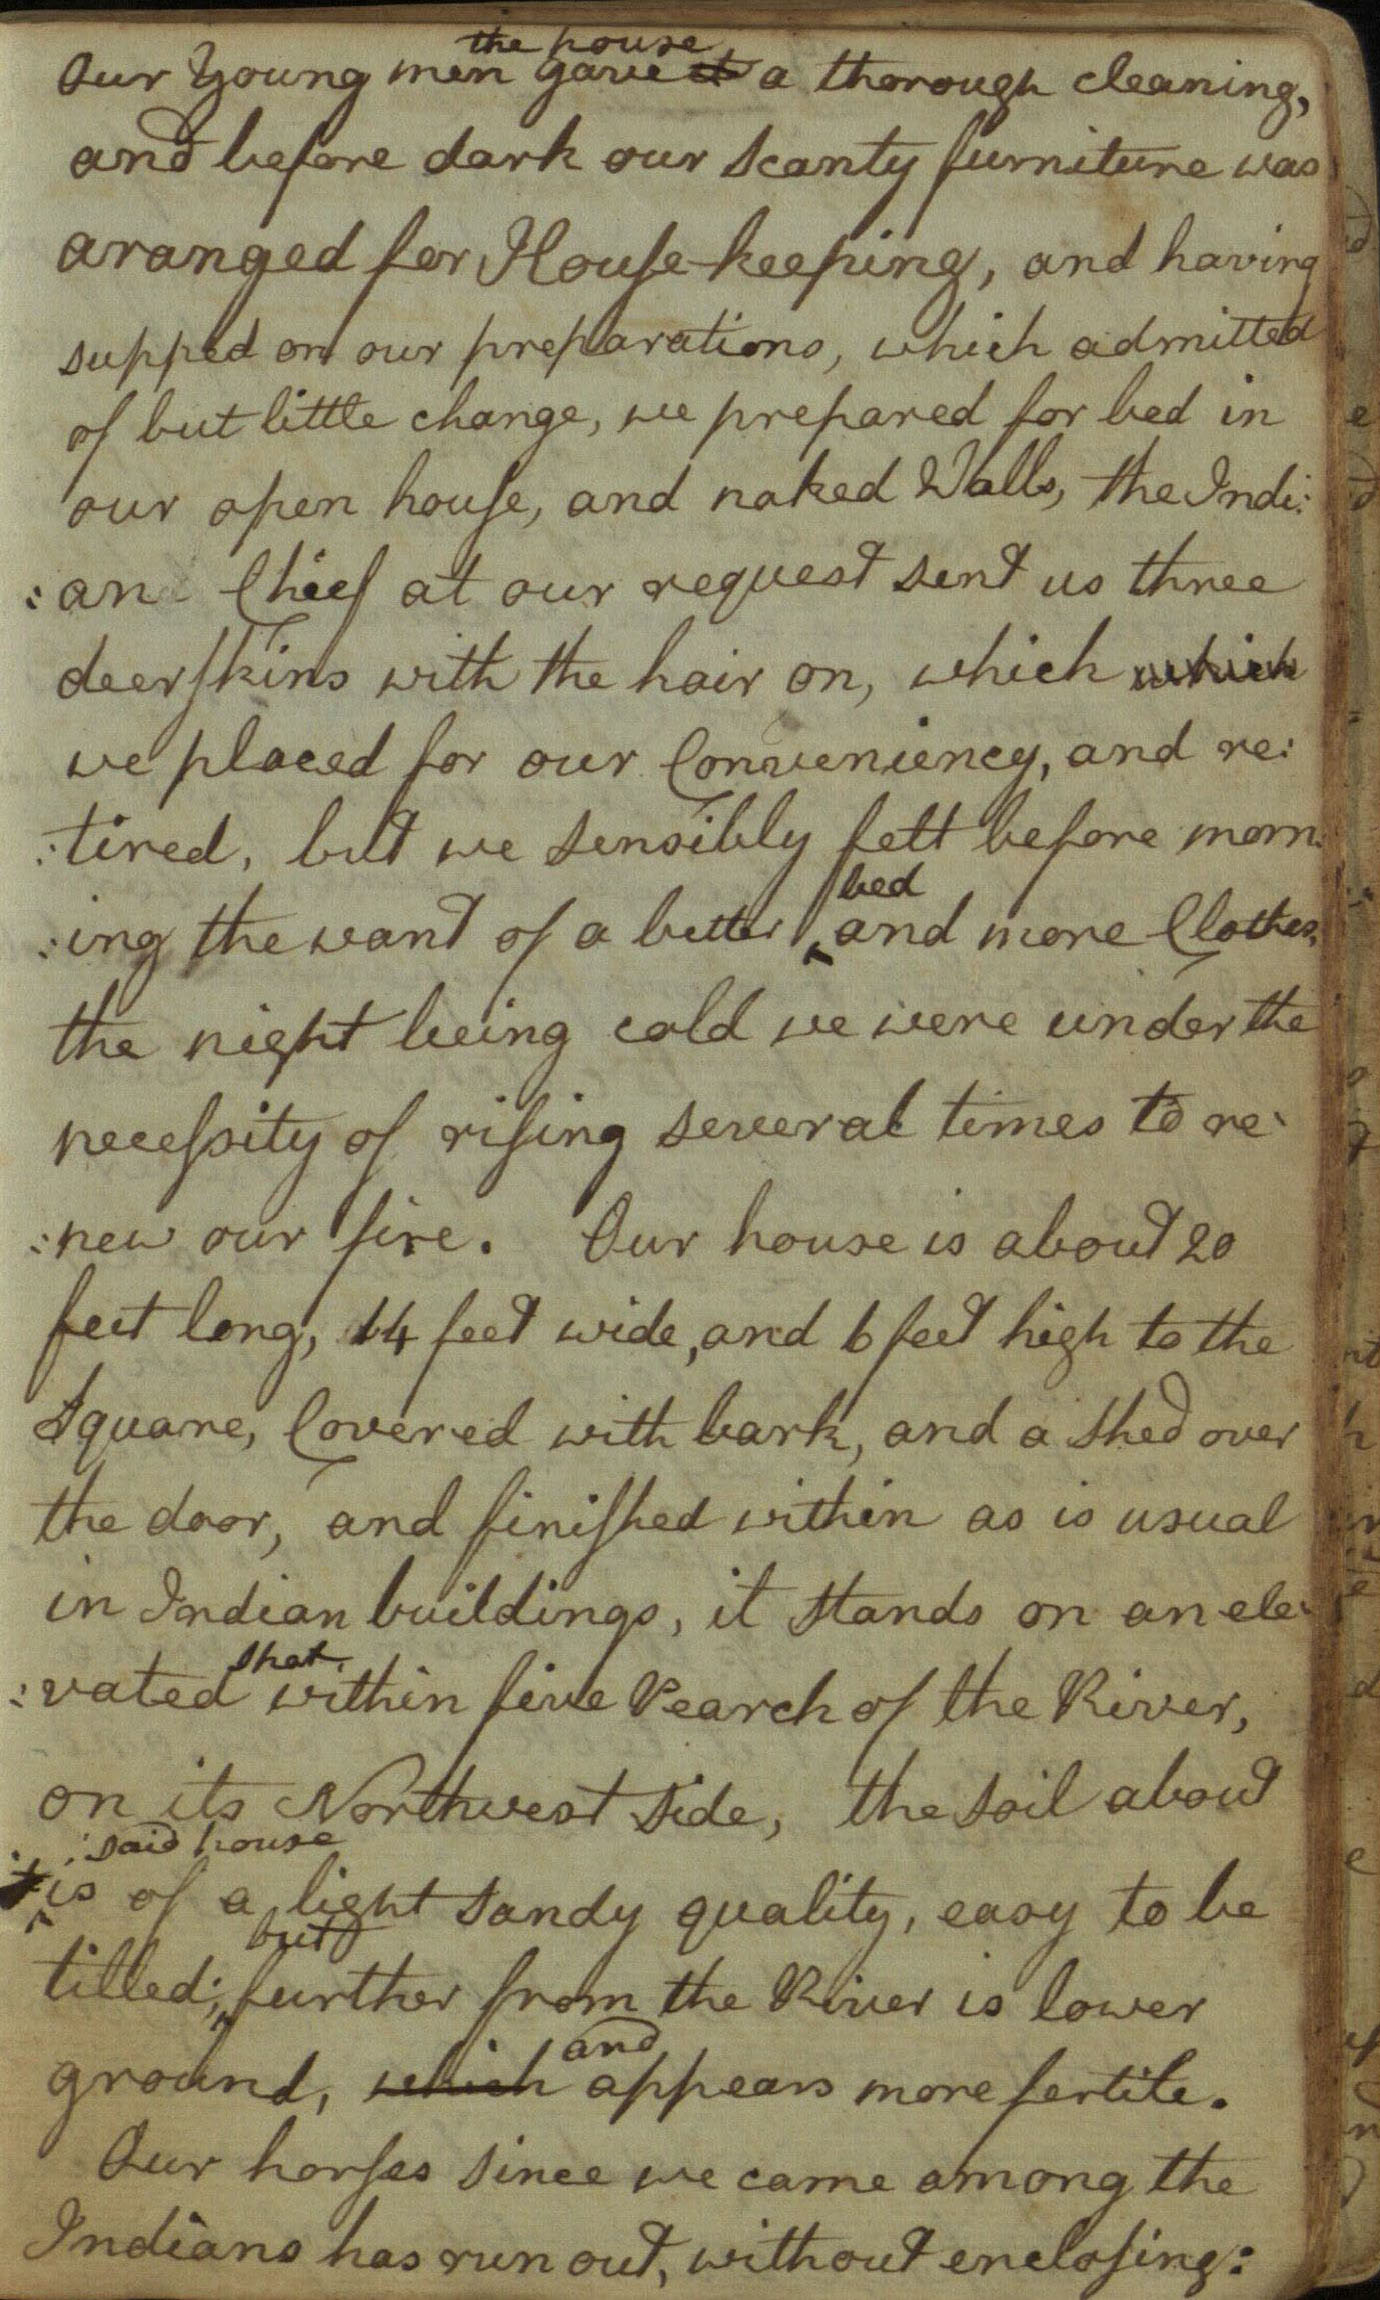 the house
Our Young men gave it a thorough cleaning,
and before dark our scanty furniture was
aranged for House-keeping, and having
supped on our preparations, which admitted
of but little change, we prepared for bed in
our open house, and naked Walls, the Indi:
:an Chief at our request sent us three
deerskins with the hair on, which which
we placed for our Conveniency, and re:
:tired, but we sensibly felt before morn:
bed
:ing the want of a better ‸ and more Clothes,
the night being cold we were under the
necessity of rising several times to re:
:new our fire. Our house is about 20
feet long, 14 feet wide, and 6 feet high to the
Square, Covered with bark, and a shed over
the door, and finished within as is usual
in Indian buildings, it stands on an ele:
spot
:vated within five Pearch of the River,
on its Northwest side, the soil about
said house
it is of a light sandy quality, easy to be
but
tilled; ‸ further from the River is lower
and
ground, which appears more fertile.
Our horses since we came among the
Indians has run out, without enclosing: